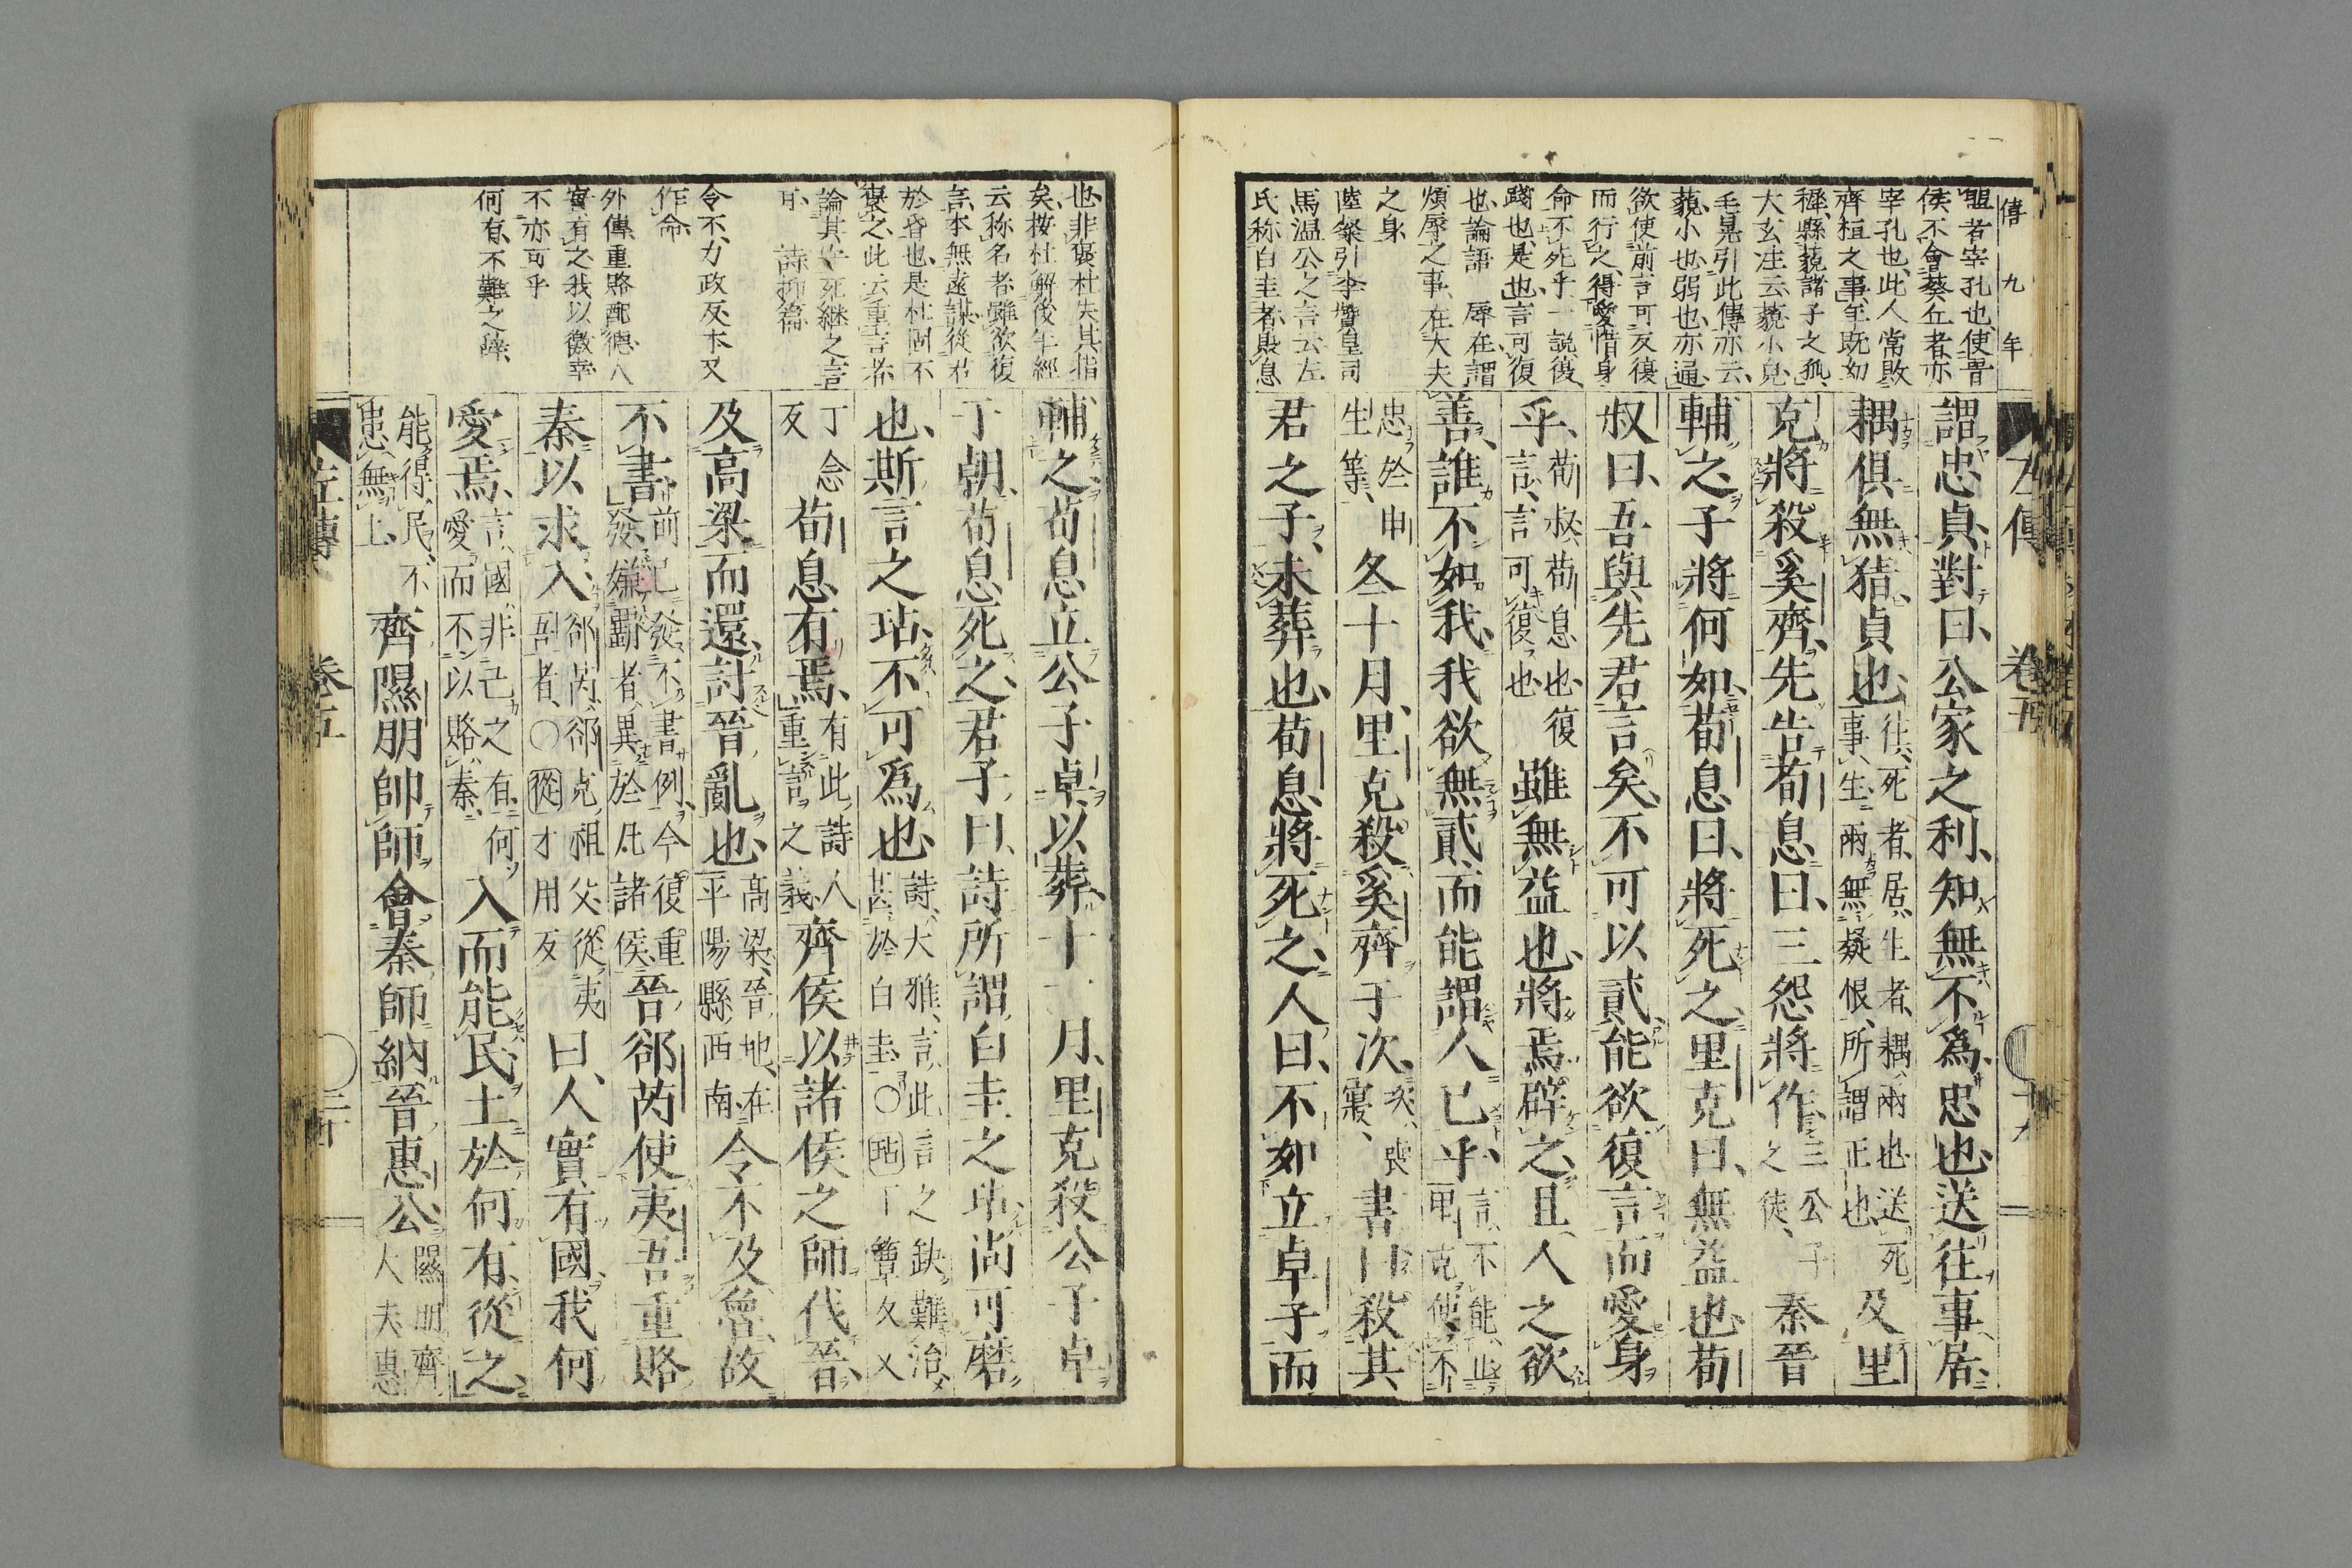 僖九年
謂忠貞對曰公家之利知無不爲忠也送往事居
耦俱無猜貞也往死者居生者耦兩也送死事生兩無疑恨所謂正也及里
克將殺奚齊先告荀息曰三怨將作三公子之徒秦晉
輔之子將何如荀息曰將死之里克曰無益也荀
叔曰吾與先君言矣不可以貳能欲復言而愛身
乎荀叔荀息也復言言可復也雖無益也將焉辟之且人之欲
善誰不如我我欲無貳而能謂人已乎言不能止里克使不
忠於申生等冬十月里克殺奚齊于次次喪寢書曰殺其
君之子未葬也荀息將死之人曰不如立卓子而
輔之荀息立公子卓以葬十一月里克殺公子卓
于朝荀息死之君子曰詩所謂白圭之玷尚可磨
也斯言之玷不可爲也詩大雅言此言之缺難治甚於白圭〇玷丁簟久又
丁念反荀息有焉有此詩人重言之義齊侯以諸侯之師伐晉
及高梁而還討晉亂也高梁晉地在平陽縣西南令不及魯故
不書前已發不書例今復重發嫌霸者異於凡諸侯晉郤芮使夷吾重賂
秦以求入郤芮郤克祖父從夷吾者〇從才用反曰人實有國我何
愛焉言國非己之有何愛而不以賂秦入而能民土於何有從之
能得民不患無土齊隰朋帥師會秦師納晉惠公隰朋齊大夫惠
耼者宰孔也使晉
侯不會葵丘者亦
宰孔也此人常敗
齊桓之事年既幼
穉縣藐諸子之孤
大玄注云藐小皃
毛晃引此傳亦云
藐小也弱也亦通
欲使前言可反復
而行之得愛惜身
命不死乎一説復
踐也是也言可復
也論語 辱在謂
煩辱之事在大夫
之身
陸粲引李贊皇司
馬温公之言云左
氏称白圭者貶息
也非褒杜失其指
矣按杜解後年經
云称名者雖欲復
言本無遠謀從君
於昏也是杜固不
褒之此云重言者
論其以死継之言
耳 詩抑篇
令不力政反本又
作命
外傳重賂配德人
實有之我以徼幸
不亦可乎
何有不難之辭
左傳 卷五 十九
左傳 卷五 二十